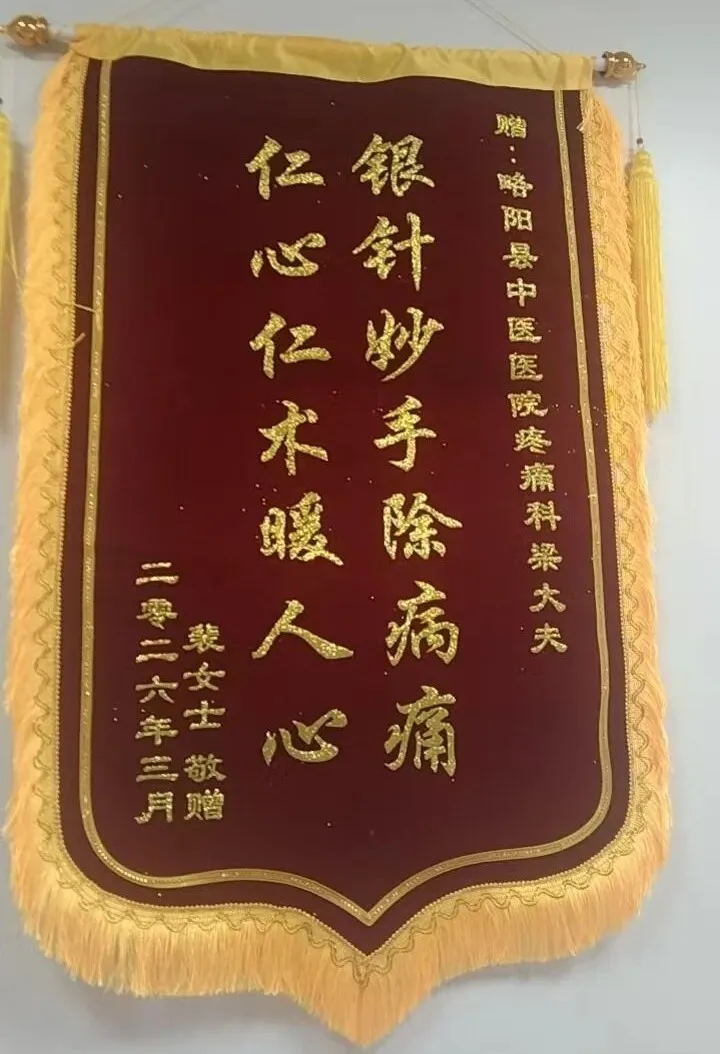 赠：略阳县中医医院疼痛科梁大夫
银针妙手除病痛
仁心仁术暖人心
裴女士 敬赠
二零二六年三月